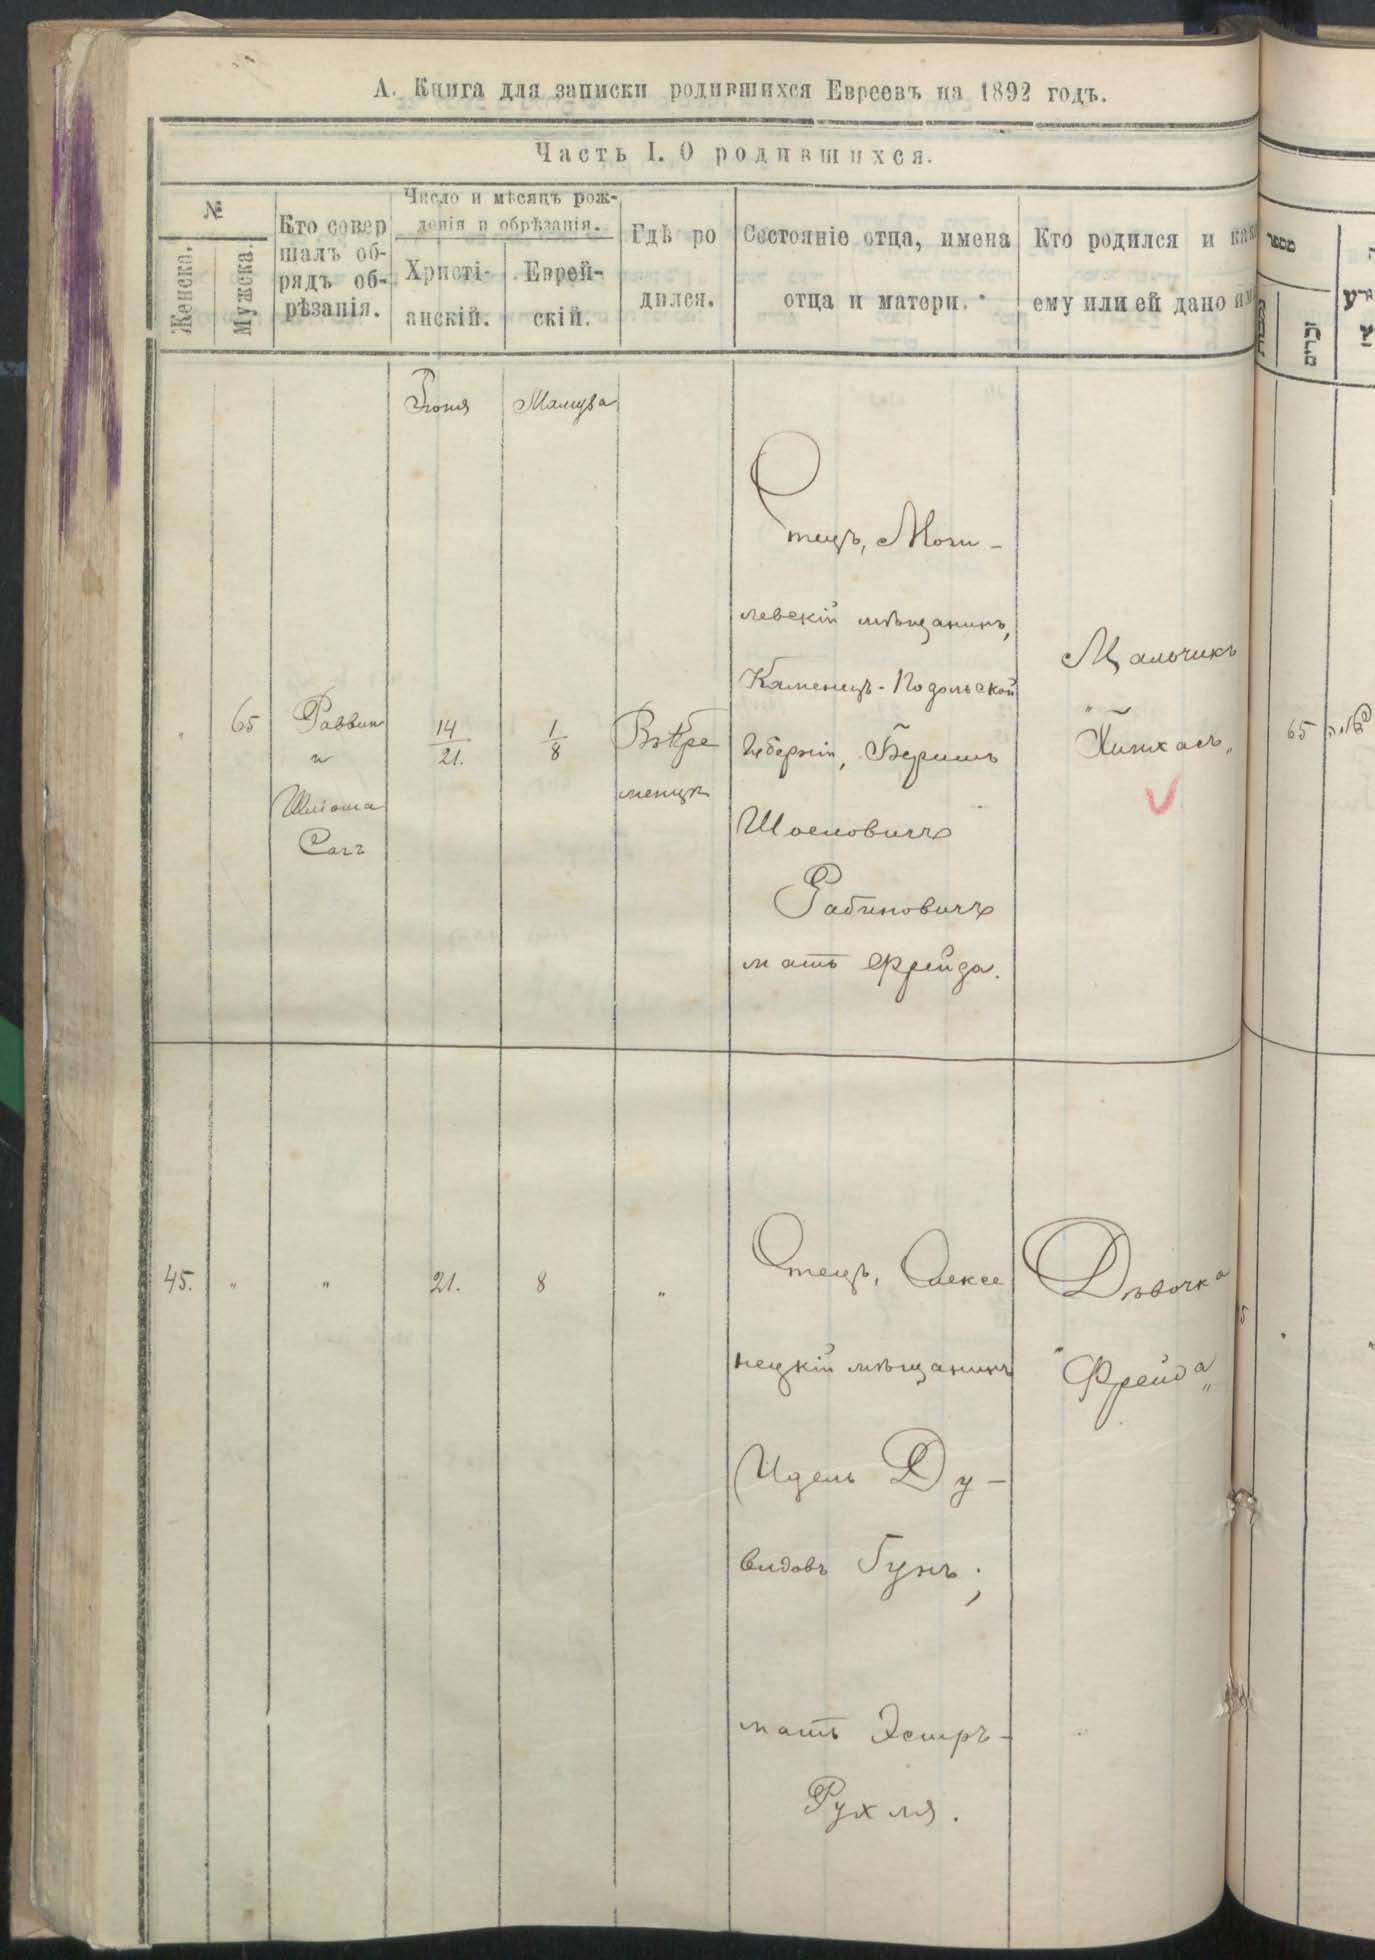 А. Книга для записки родившихся Евреевъ на 1892 годъ.
Часть I. О родившихся.
№
Женска.
Мужска.
Кто совер
шалъ об-
рядъ об-
рѣзанія.
Число и мѣсяцъ рож-
денія и обрѣзанія.
Христі-
анскій.
Еврей-
скій.
Гдѣ ро
дился.
Состояніе отца, имена
отца и матери.
Кто родился и как
ему или ей дано им
מספר
זכרים
Іюня
Тамуза
"
65
Раввин
и
Сагг
14
21.
1
8
Въ Кре
менцѣ
Отецъ, Моги-
левскій мѣщанинъ,
Каменецъ-Подольской
Губерніи, Беришъ
Рабиновичъ
мать Фрейда.
Мальчикъ
"Пинхасъ"
65
45.
"
"
21.
8
"
Отецъ, Алексе
нецкій мѣщанинъ
Идель Ду-
видовъ Гунъ;
мать Эстръ-
Рухля.
Дѣвочка
"Фрейда"